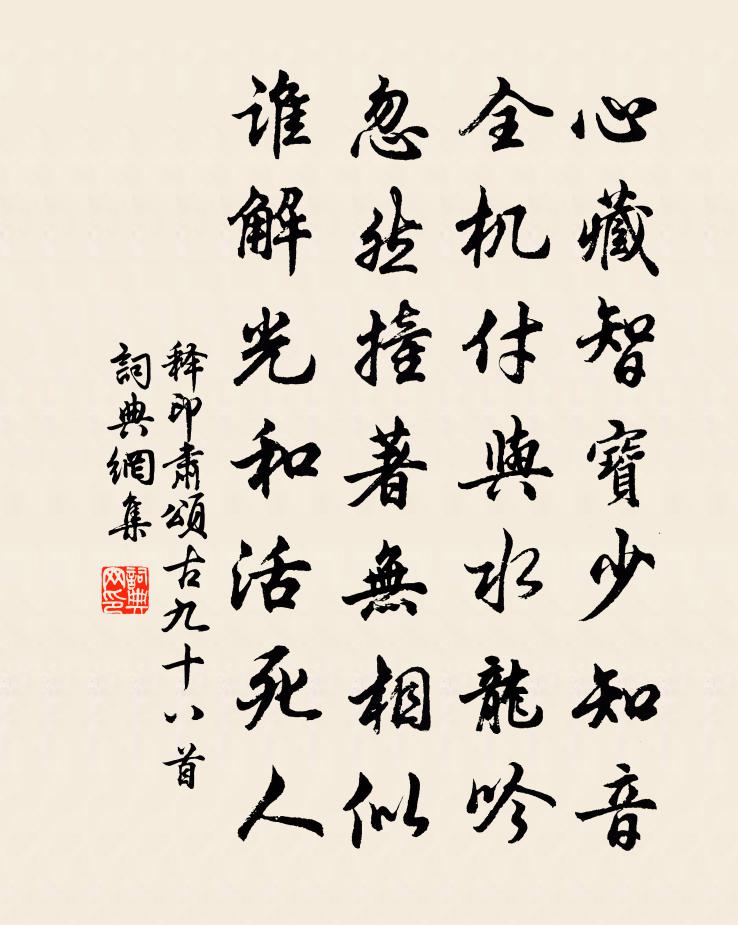 心藏智寶少知音
全机付與水龍吟
忽然撞著無相似
谁解光和活死人
释印肅頌古九十八首
詞典網集
詞典网印